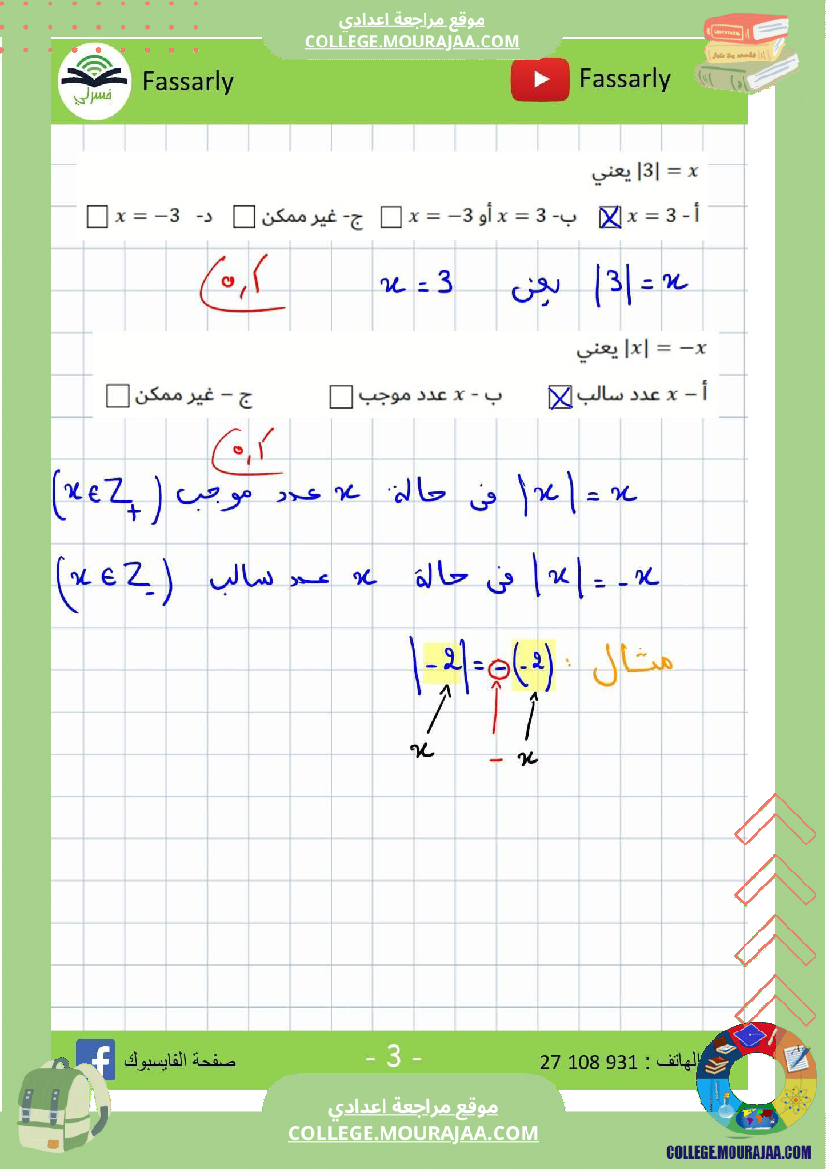 موقع مراجعة اعدادي
COLLEGE.MOURAJAA.COM
فسرلي Fassarly Fassarly
|3| = x يعني
أ - x = 3 ب- x = 3 أو x = −3 ج- غير ممكن د- x = −3
|3| = x يعني x = 3
|x| = −x يعني
أ – x عدد سالب ب - x عدد موجب ج – غير ممكن
|x| = x في حالة x عدد موجب (x ∈ Z₊)
|x| = -x في حالة x عدد سالب (x ∈ Z₋)
مثال : |-2| = -(-2)
x - x
صفحة الفايسبوك - 3 - الهاتف : 27 108 931
موقع مراجعة اعدادي
COLLEGE.MOURAJAA.COM
COLLEGE.MOURAJAA.COM